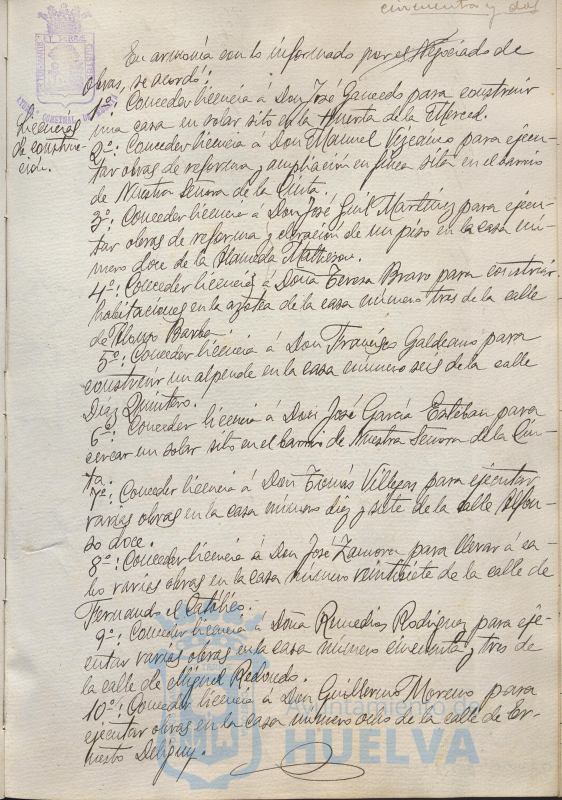 cincuenta y dos
En armonía con lo informado por el Negociado de
obras, se acordó:
Licencias
de construc-
ción.
1º: Conceder licencia á Don José Gancedo para construir
una casa en solar sito en la Huerta de la Merced.
2º: Conceder licencia á Don Manuel Vizcaino para ejecu-
tar obras de reforma y ampliación en finca sita en el barrio
de Nuestra Senora de la Cinta.
3º: Conceder licencia á Don José Guil Martínez para ejecu-
tar obras de reforma y elevación de un piso en la casa nú-
mero doce de la Alameda Matheson.
4º: Conceder licencia á Doña Teresa Bravo para construir
habitaciones en la azotea de la casa número tres de la calle
de Alonso Barba.
5º: Conceder licencia á Don Francisco Galdeano para
construir un alpende en la casa número seis de la calle
Díez Quintero.
6º: Conceder licencia á Don José García Esteban para
cercar un solar sito en el barrio de Nuestra Senora de la Cin-
ta.
7º: Conceder licencia á Don Tomás Villegas para ejecutar
varias obras en la casa número diez y siete de la calle Alfon-
so doce.
8º: Conceder licencia á Don José Zamora para llevar á ca-
bo varias obras en la casa número veintisiete de la calle de
Fernando el Católico.
9º: Conceder licencia á Doña Remedios Rodríguez para eje-
cutar varias obras en la casa número cincuenta y tres de
la calle de Miguel Redondo.
10º: Conceder licencia á Don Guillermo Moreno para
ejecutar obras en la casa número ocho de la calle de Er-
nesto Deligny.
Ayuntamiento de
HUELVA